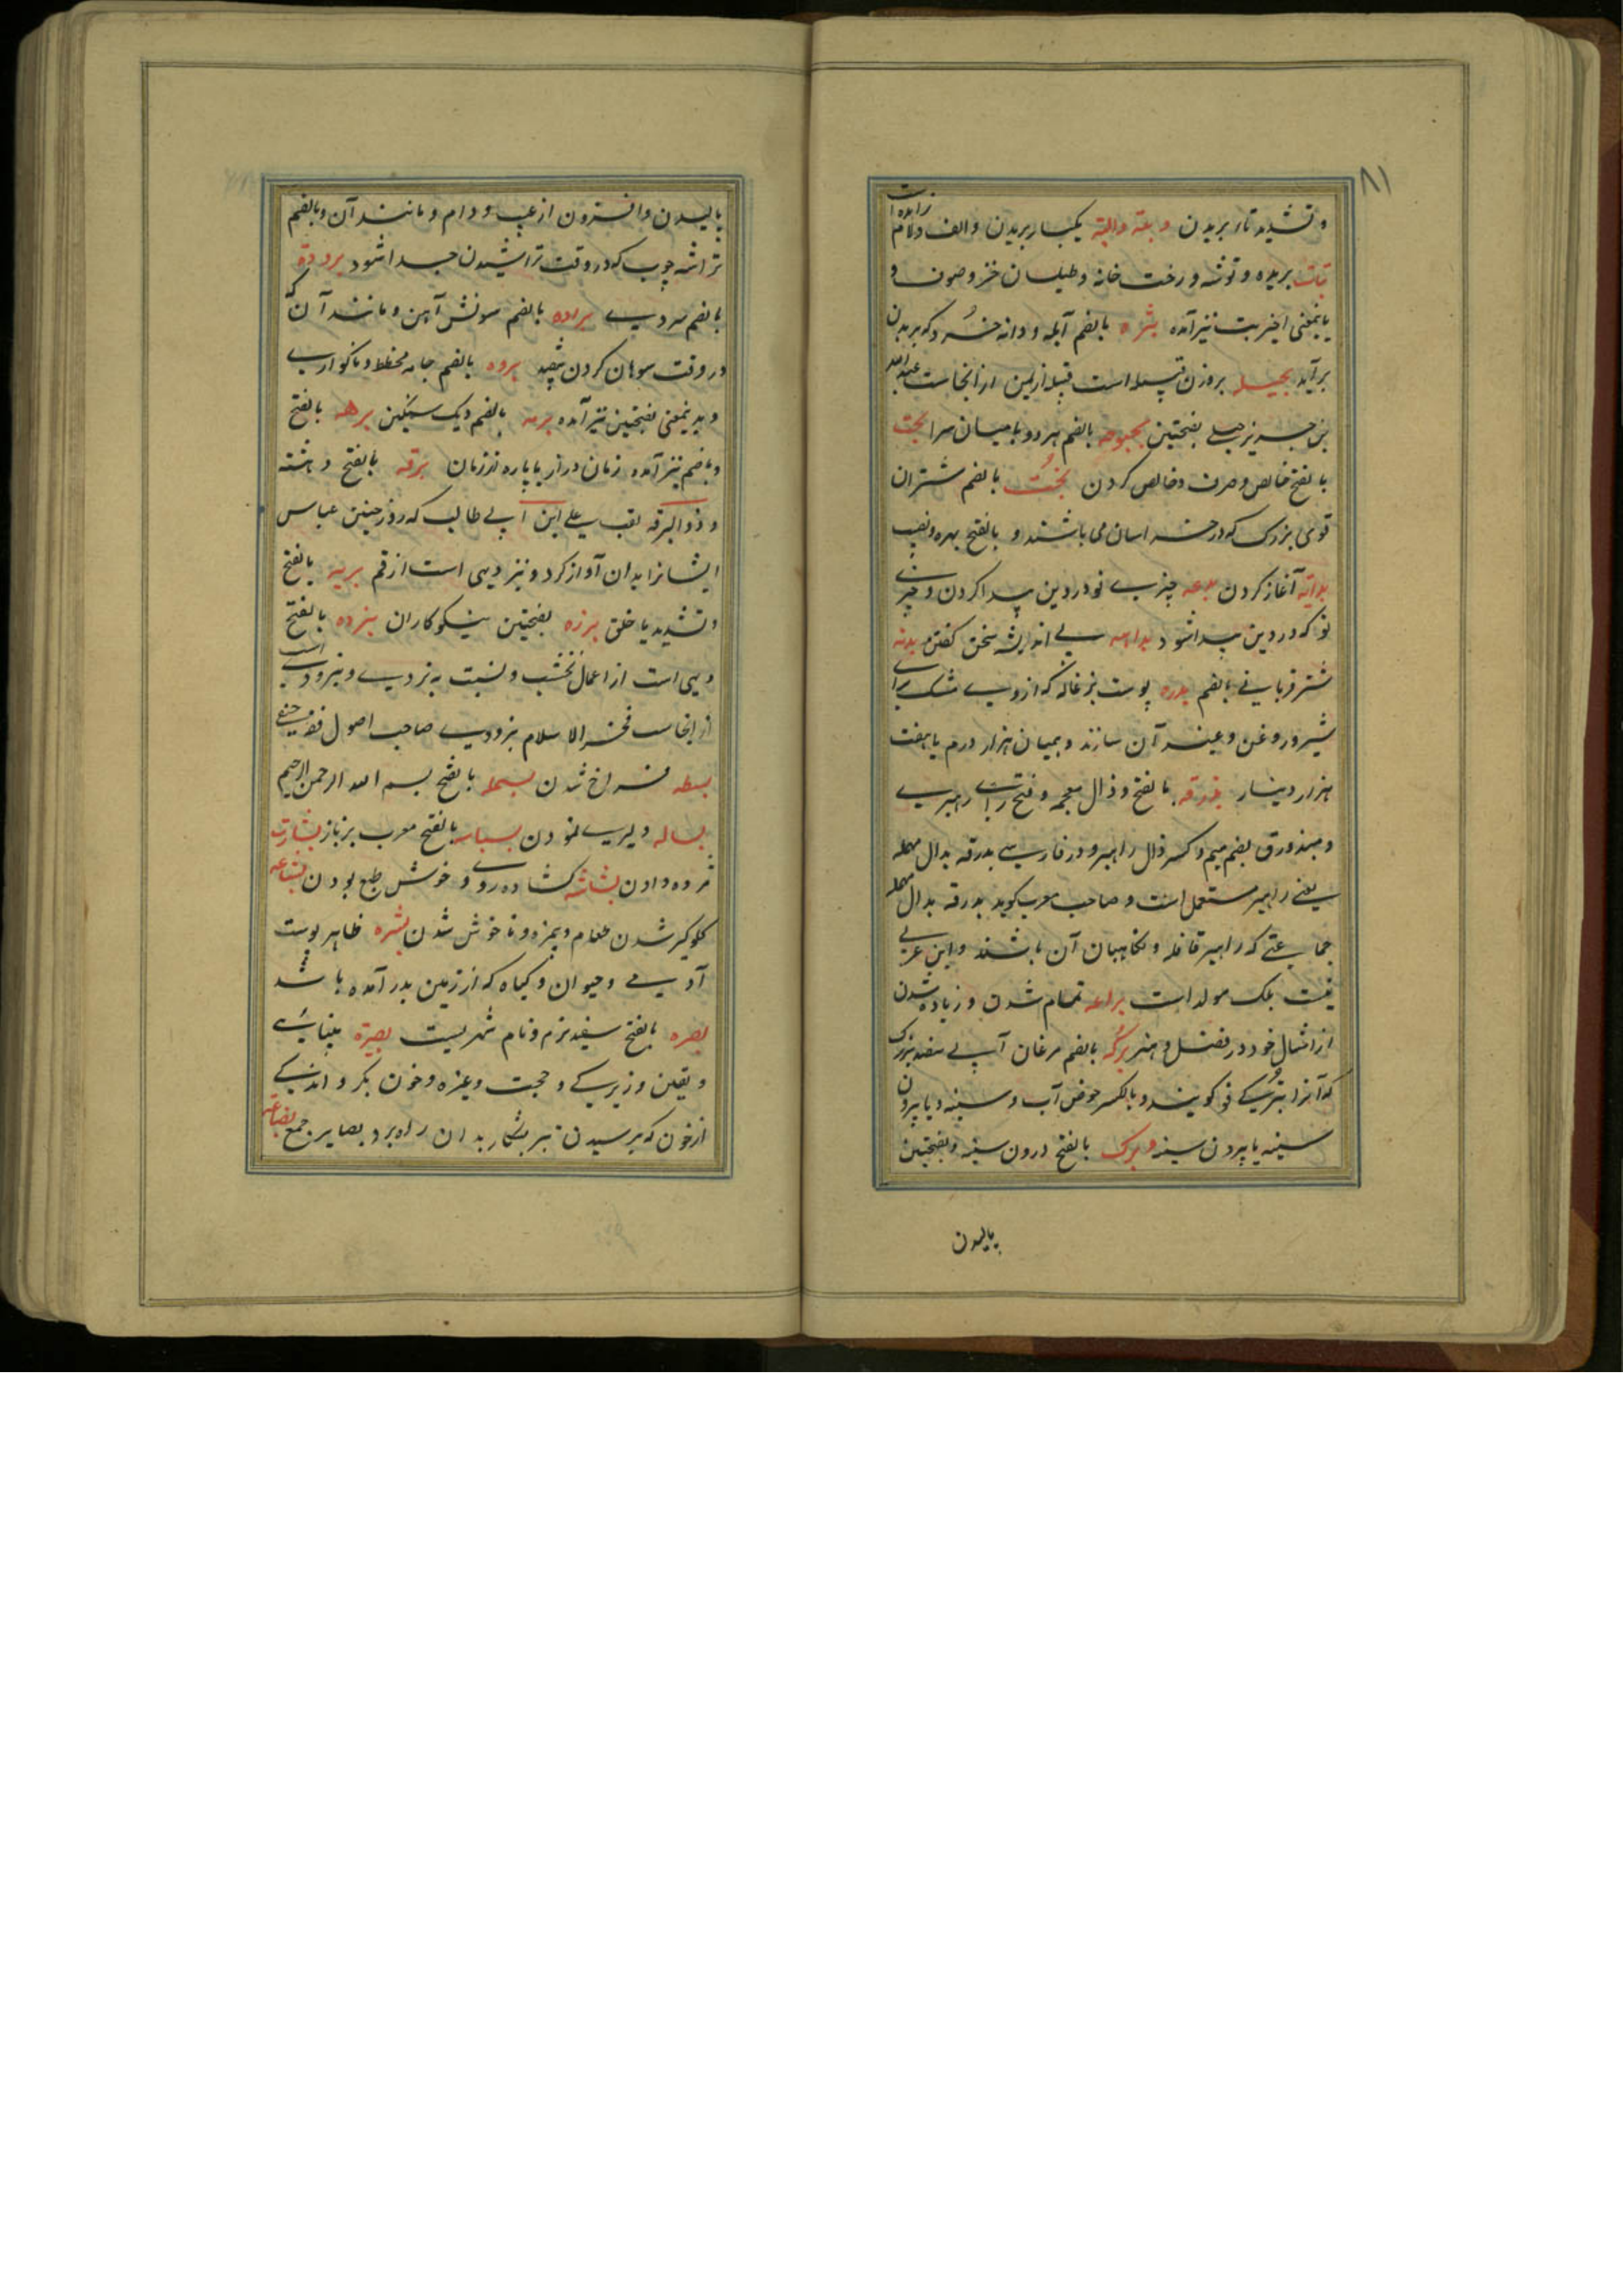 ۸۱
و تشدید تاء بریدن و بتة والبتة یکبار بریدن و الف و لام زایده است
بتات بریده و توشه و رخت خانه و طیلسان خز و صوف و
باینمعنی اخیر بت نیز آمده بثره بالضم آبله و دانه خرد که بر بدن
برآید بجیله بروزن قبیله است قبیله از یمن از آنجاست عبدالله
بجلی بفتحتین بحبوحه بالضم هر دو با میان سرا بحت
بالفتح خالص و صرف و خالص کردن بخت بالضم شتران
قوی بزرک که در خراسان می باشند و بالفتح بهره و نصیب
بدایة آغاز کردن بدعه چیزی نو در دین پیدا کردن و چیزی
نو که در دین پیدا شود بداهه بی اندیشه سخن کفتن بدنه
شتر قربانی بالضم بدره پوست بزغاله که از وی مشک برای
شیر و روغن و غیر آن سازند و همیان هزار درم یا هفت
هزار دینار بذرقه بالفتح و ذال معجمه و فتح را راهبری
و مبذرق بضم میم و کسر ذال راهبر و در فارسی بدرقه بدال مهمله
یعنی راهبر مستعمل است و صاحب معرب کوید بدرقه بدال مهمله
جماعتی که راهبر قافله و نکاهبان آن باشند و این عربی
نیست بلک مولد است براعه تمام شدن و زیاده شدن
از امثال خود در فضل و هنر برکه بالضم مرغان آبی سفید بزرک
که آنرا بترکی قو کویند و بالکسر حوض آب و سینه و یا بیرون
سینه یا بیرون سینه و برک بالفتح درون سینه و بفتحتین
بالیدن
بالیدن و افزون از عیب و دام و مانند آن و بالضم
تراشه چوب که در وقت تراشیدن جدا شود برودة
بالضم سردی براده بالضم سونش آهن و مانند آن که
در وقت سوهان کردن بیفتد برده بالضم جامه مخطط و ناکواری
و بدینمعنی بفتحتین نیز آمده برمه بالضم دیک سنکین برهه بالفتح
و بالضم نیز آمده زمان دراز یا پاره از زمان برقه بالفتح دهشته
و ذوالبرقه لقب علی ابن ابی طالب که روز حنین عباس
ایشانرا بدان آواز کرد و نیز دیهی است از قم بریه بالفتح
و تشدید یا خلق برره بفتحتین نیکوکاران بزده بالفتح
دیهی است از اعمال نخشب و نسبت به بزدی و بزدوی است
از انجاست فخر الاسلام بزدوی صاحب اصول فقه حنفی
بسطه فراخ شدن بسمله بالفتح بسم الله الرحمن الرحیم
بساله دلیری نمودن بسباسه بالفتح معرب بزباز بشارت
مژده دادن بشاشه کشاده روی و خوش طبع بودن بشاعه
کلوکیر شدن طعام و بیمزه و ناخوش شدن بشره ظاهر پوست
آدمی و حیوان و کیاه که از زمین بدر آمده باشد
بصره بالفتح سفید نرم و نام شهریست بصیرة بینائی
و یقین و زیرکی و حجت و عبره و خون بکر و اندکی
از خون که برسیدن تیر بشکار بدان راه برد بصایر جمع بضاعه